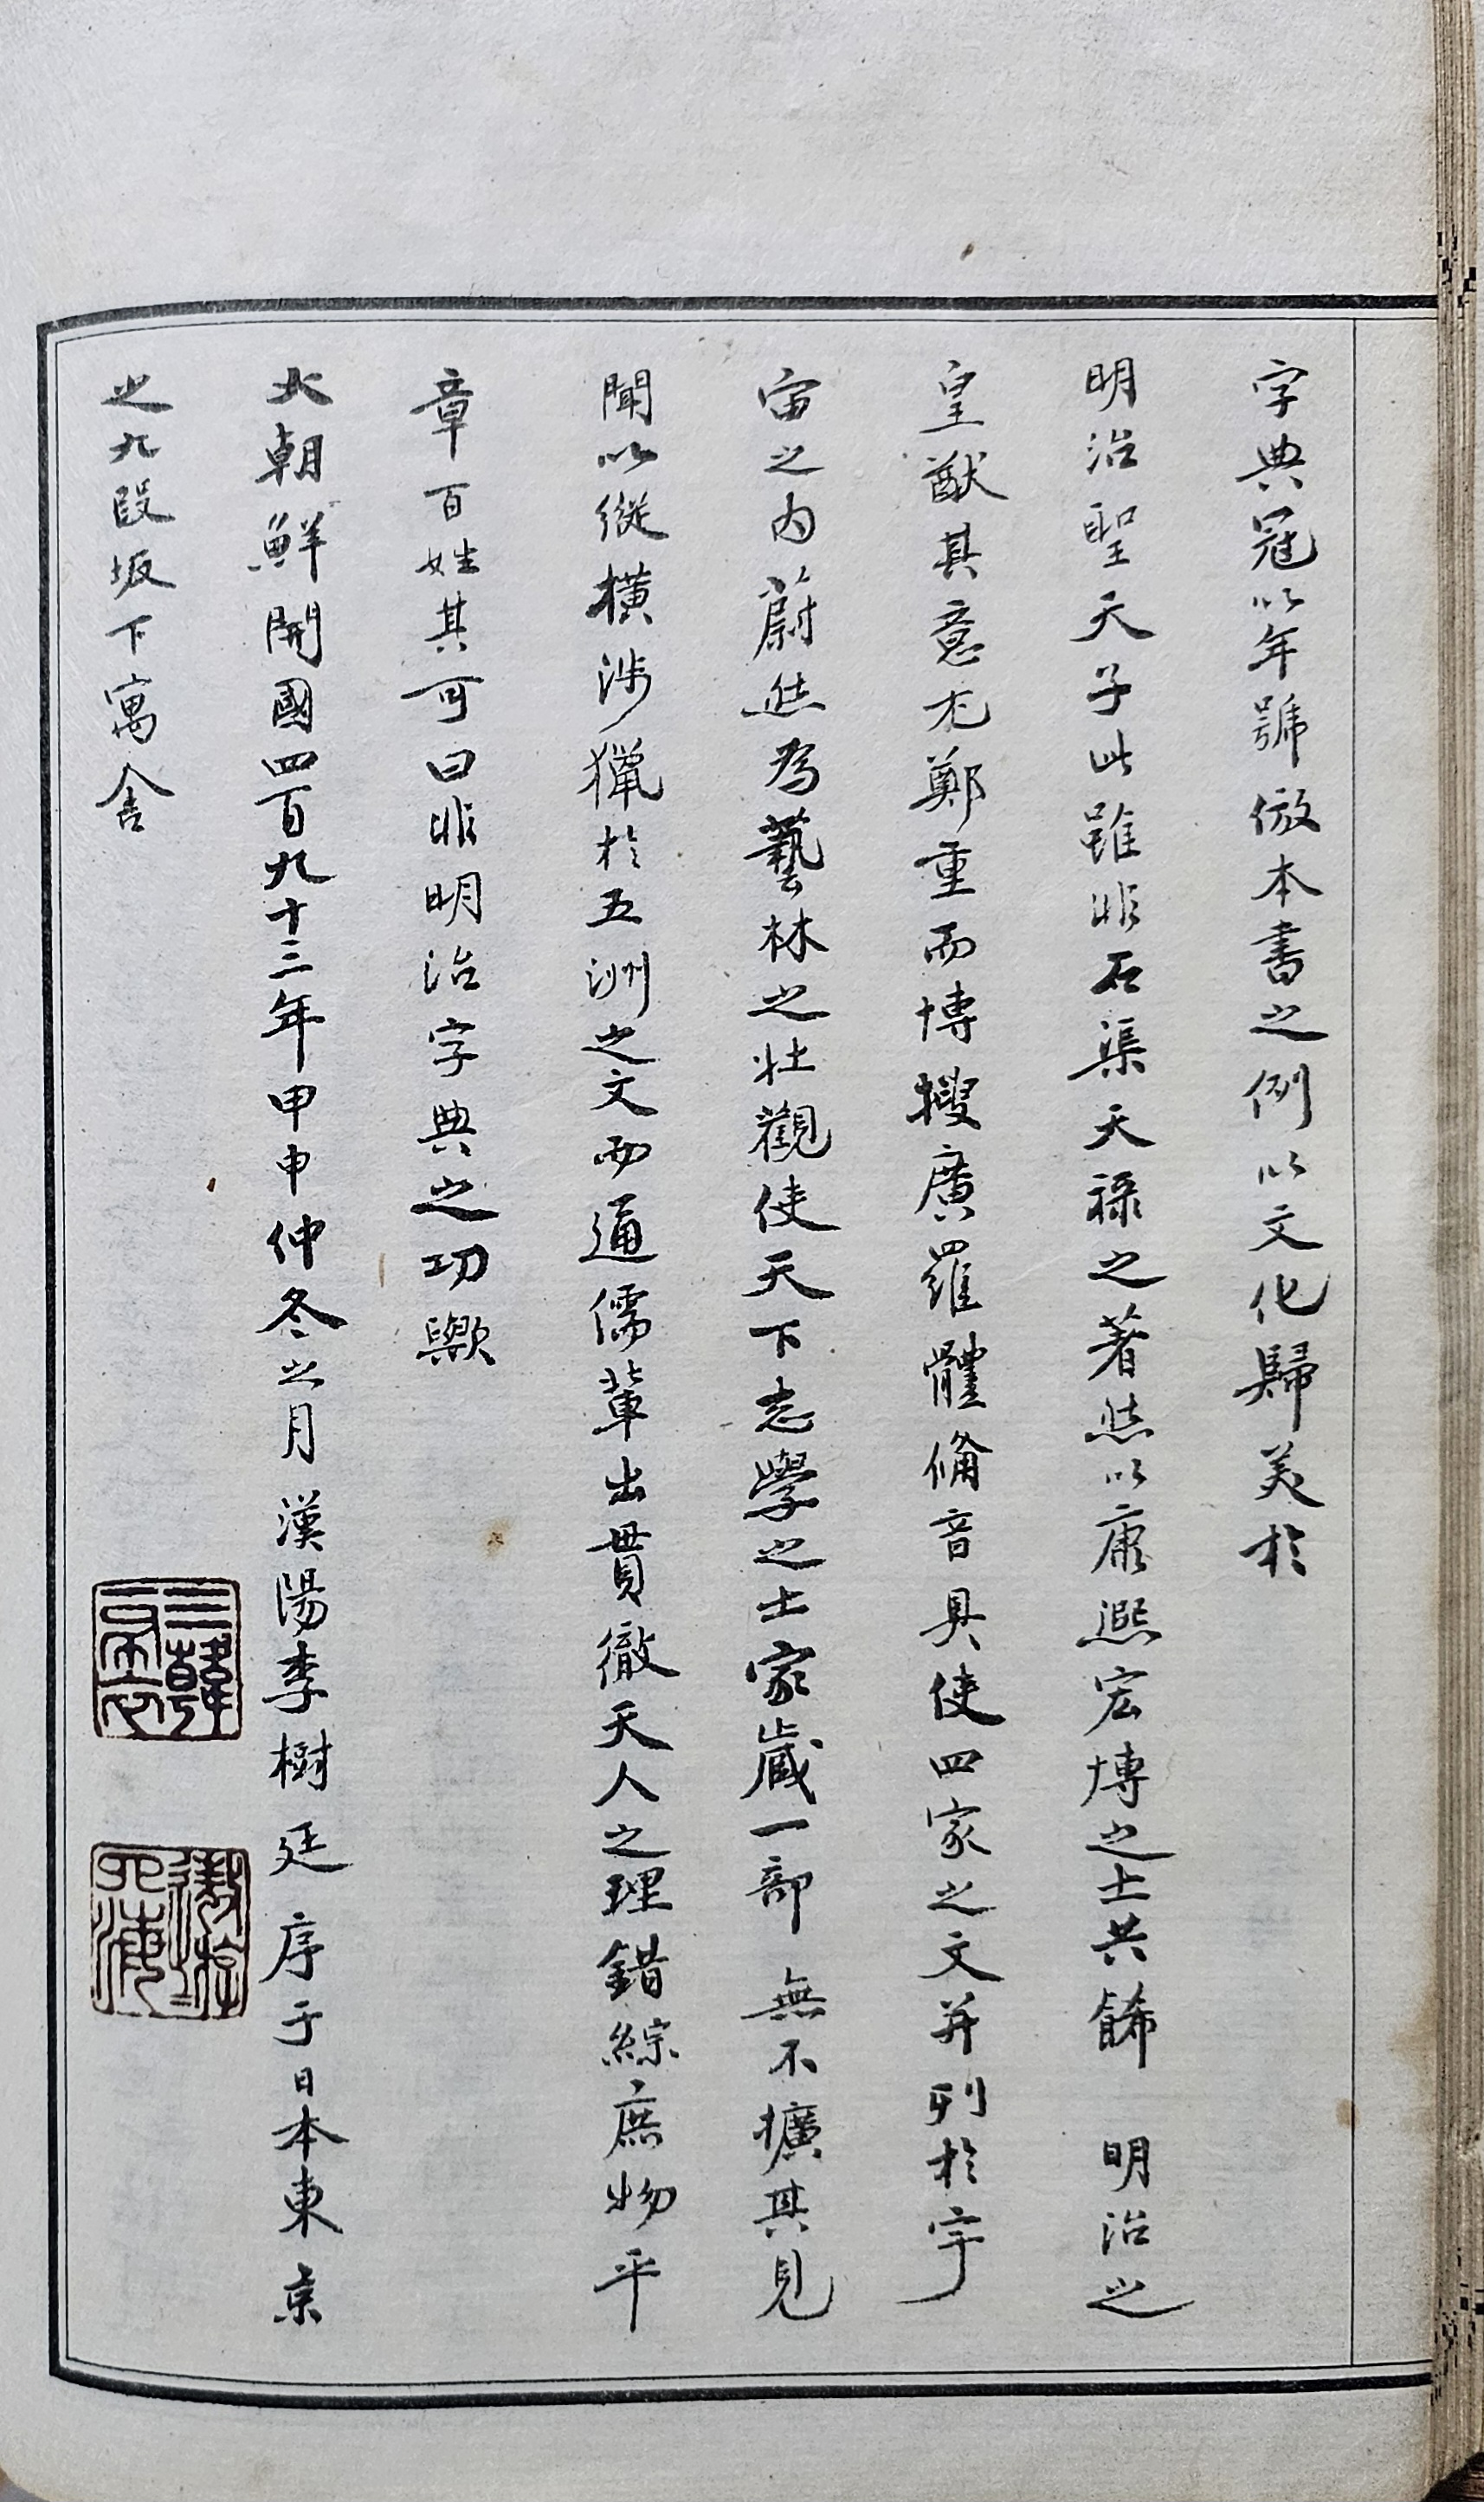 字典冠以年號倣本書之例以文化歸美於
明治聖天子此雖非石渠天祿之著然以康熙宏博之士共餙　明治之
皇猷其意尤鄭重而博搜廣羅體俻音具使四家之文并列於宇
宙之內蔚然為藝林之壯觀使天下志學之士家藏一部無不擴其見
聞以縱橫涉獵於五洲之文而通儒輩出貫徹天人之理錯綜庶物平
章百姓其可曰非明治字典之功歟
大朝鮮開國四百九十三年甲申仲冬之月漢陽李樹廷序于日本東京
之九段坂下寓舍